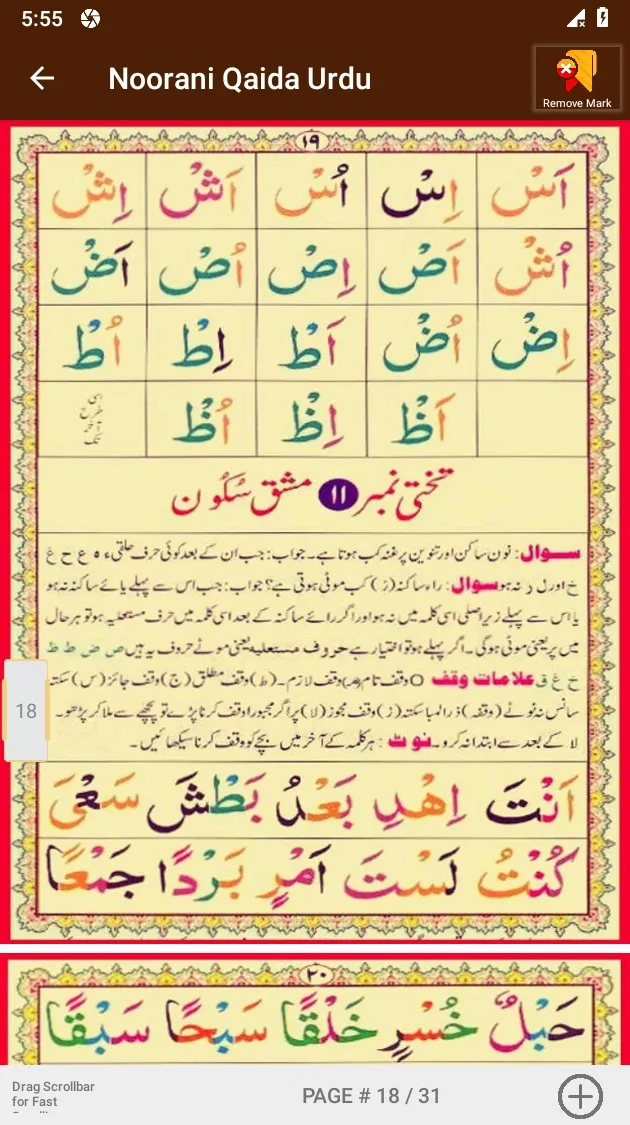 5:55
Noorani Qaida Urdu
Remove Mark
۱۹
اَسْ اِسْ اُسْ اَشْ اِشْ
اُشْ اَصْ اِصْ اُصْ اَضْ
اِضْ اُضْ اَطْ اِطْ اُطْ
اَظْ اِظْ اُظْ اسی طرح آخر تک
تختی نمبر ۱۱ مشق سُکُون
سوال: نون ساکن اور تنوین پر غنہ کب ہوتا ہے۔ جواب: جب ان کے بعد کوئی حرف حلقی ء ہ ع ح غ
خ اور ل ر نہ ہو سوال: راء ساکنہ (ر) کب موٹی ہوتی ہے؟ جواب: جب اس سے پہلے یائے ساکنہ نہ ہو
یا اس سے پہلے زیر اصلی اسی کلمہ میں نہ ہو اور اگر رائے ساکنہ کے بعد اسی کلمہ میں حرف مستعلیہ ہو تو ہر حال
میں پر یعنی موٹی ہوگی۔ اگر پہلے ہو تو اختیار ہے حروف مستعلیہ یعنی موٹے حروف یہ ہیں ص ض ط ظ
خ غ ق علامات وقف O وقف تام (م) وقف لازم۔ (ط) وقف مطلق (ج) وقف جائز (س) سکتہ
سانس نہ ٹوٹے (وقفہ) ذرا لمبا سکتہ (ز) وقف مجوز (لا) پر اگر مجبورا وقف کرنا پڑے تو پیچھے سے ملا کر پڑھو۔
لا کے بعد سے ابتدا نہ کرو۔ نوٹ: ہر کلمہ کے آخر میں بچے کو وقف کرنا سیکھائیں۔
18
اَنْتَ اِهْدِ بَعْدُ بَطْشَ سَعْیَ
كُنْتُ لَسْتَ اَمْرٍ بَرْدًا جَمْعًا
۲۰
حَبْلٌ خُسْرٍ خَلْقًا سَبْحًا سَبْقًا
Drag Scrollbar
for Fast
PAGE # 18 / 31